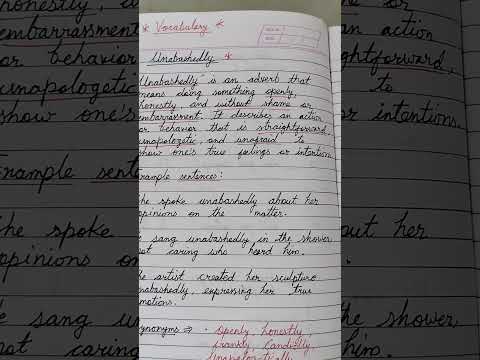 * Vocabulary *
Unabashedly *
Unabashedly is an adverb that
means doing something openly,
honestly, and without shame or
embarrassment. It describes an action
or behavior that is straightforward,
unapologetic, and unafraid to
show one's true feelings or intentions.
Example sentences:
She spoke unabashedly about her
opinions on the matter.
sang unabashedly in the shower
not caring who heard him.
The artist created her sculpture
unabashedly, expressing her true
emotions.
Synonyms ⇒ • Openly, honestly,
frankly, candidly,
unapologetically